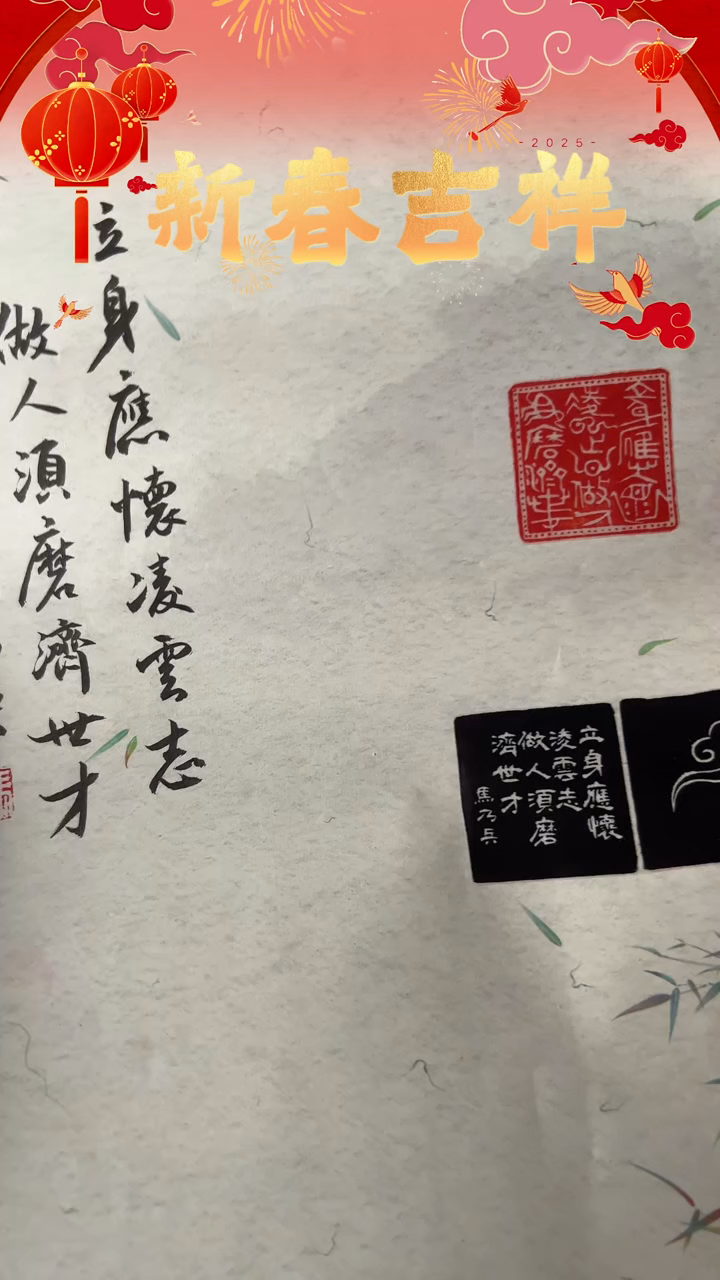 -2025-
新春吉祥
立身應懷凌雲志
做人須磨濟世才
立身應懷
凌雲志
做人須磨
濟世才
馬乃兵